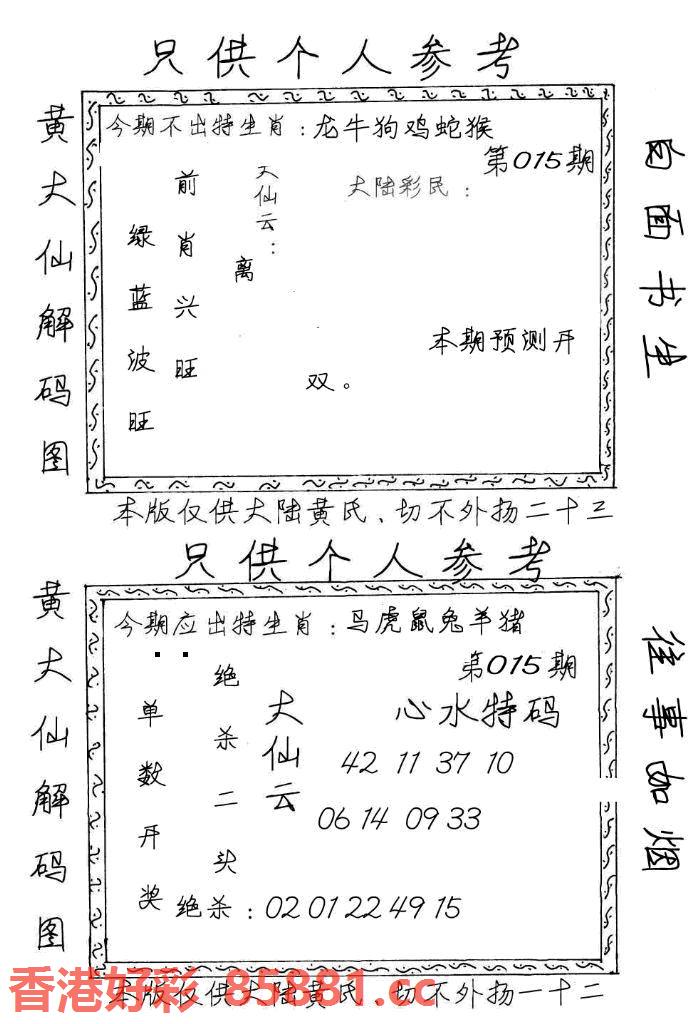 只供个人参考
黄大仙解码图
今期不出特生肖：龙牛狗鸡蛇猴
第015期
大陆彩民：
大仙云：
离
前肖兴旺
绿蓝波旺
本期预测开
双。
白面书生
本版仅供大陆黄氏、切不外扬二十三
只供个人参考
黄大仙解码图
今期应出特生肖：马虎鼠兔羊猪
第015期
心水特码
大仙云
绝杀二头
单数开奖
42 11 37 10
06 14 09 33
绝杀：02 01 22 49 15
往事如烟
本版仅供大陆黄氏、切不外扬一十二
香港好彩 85881.cc